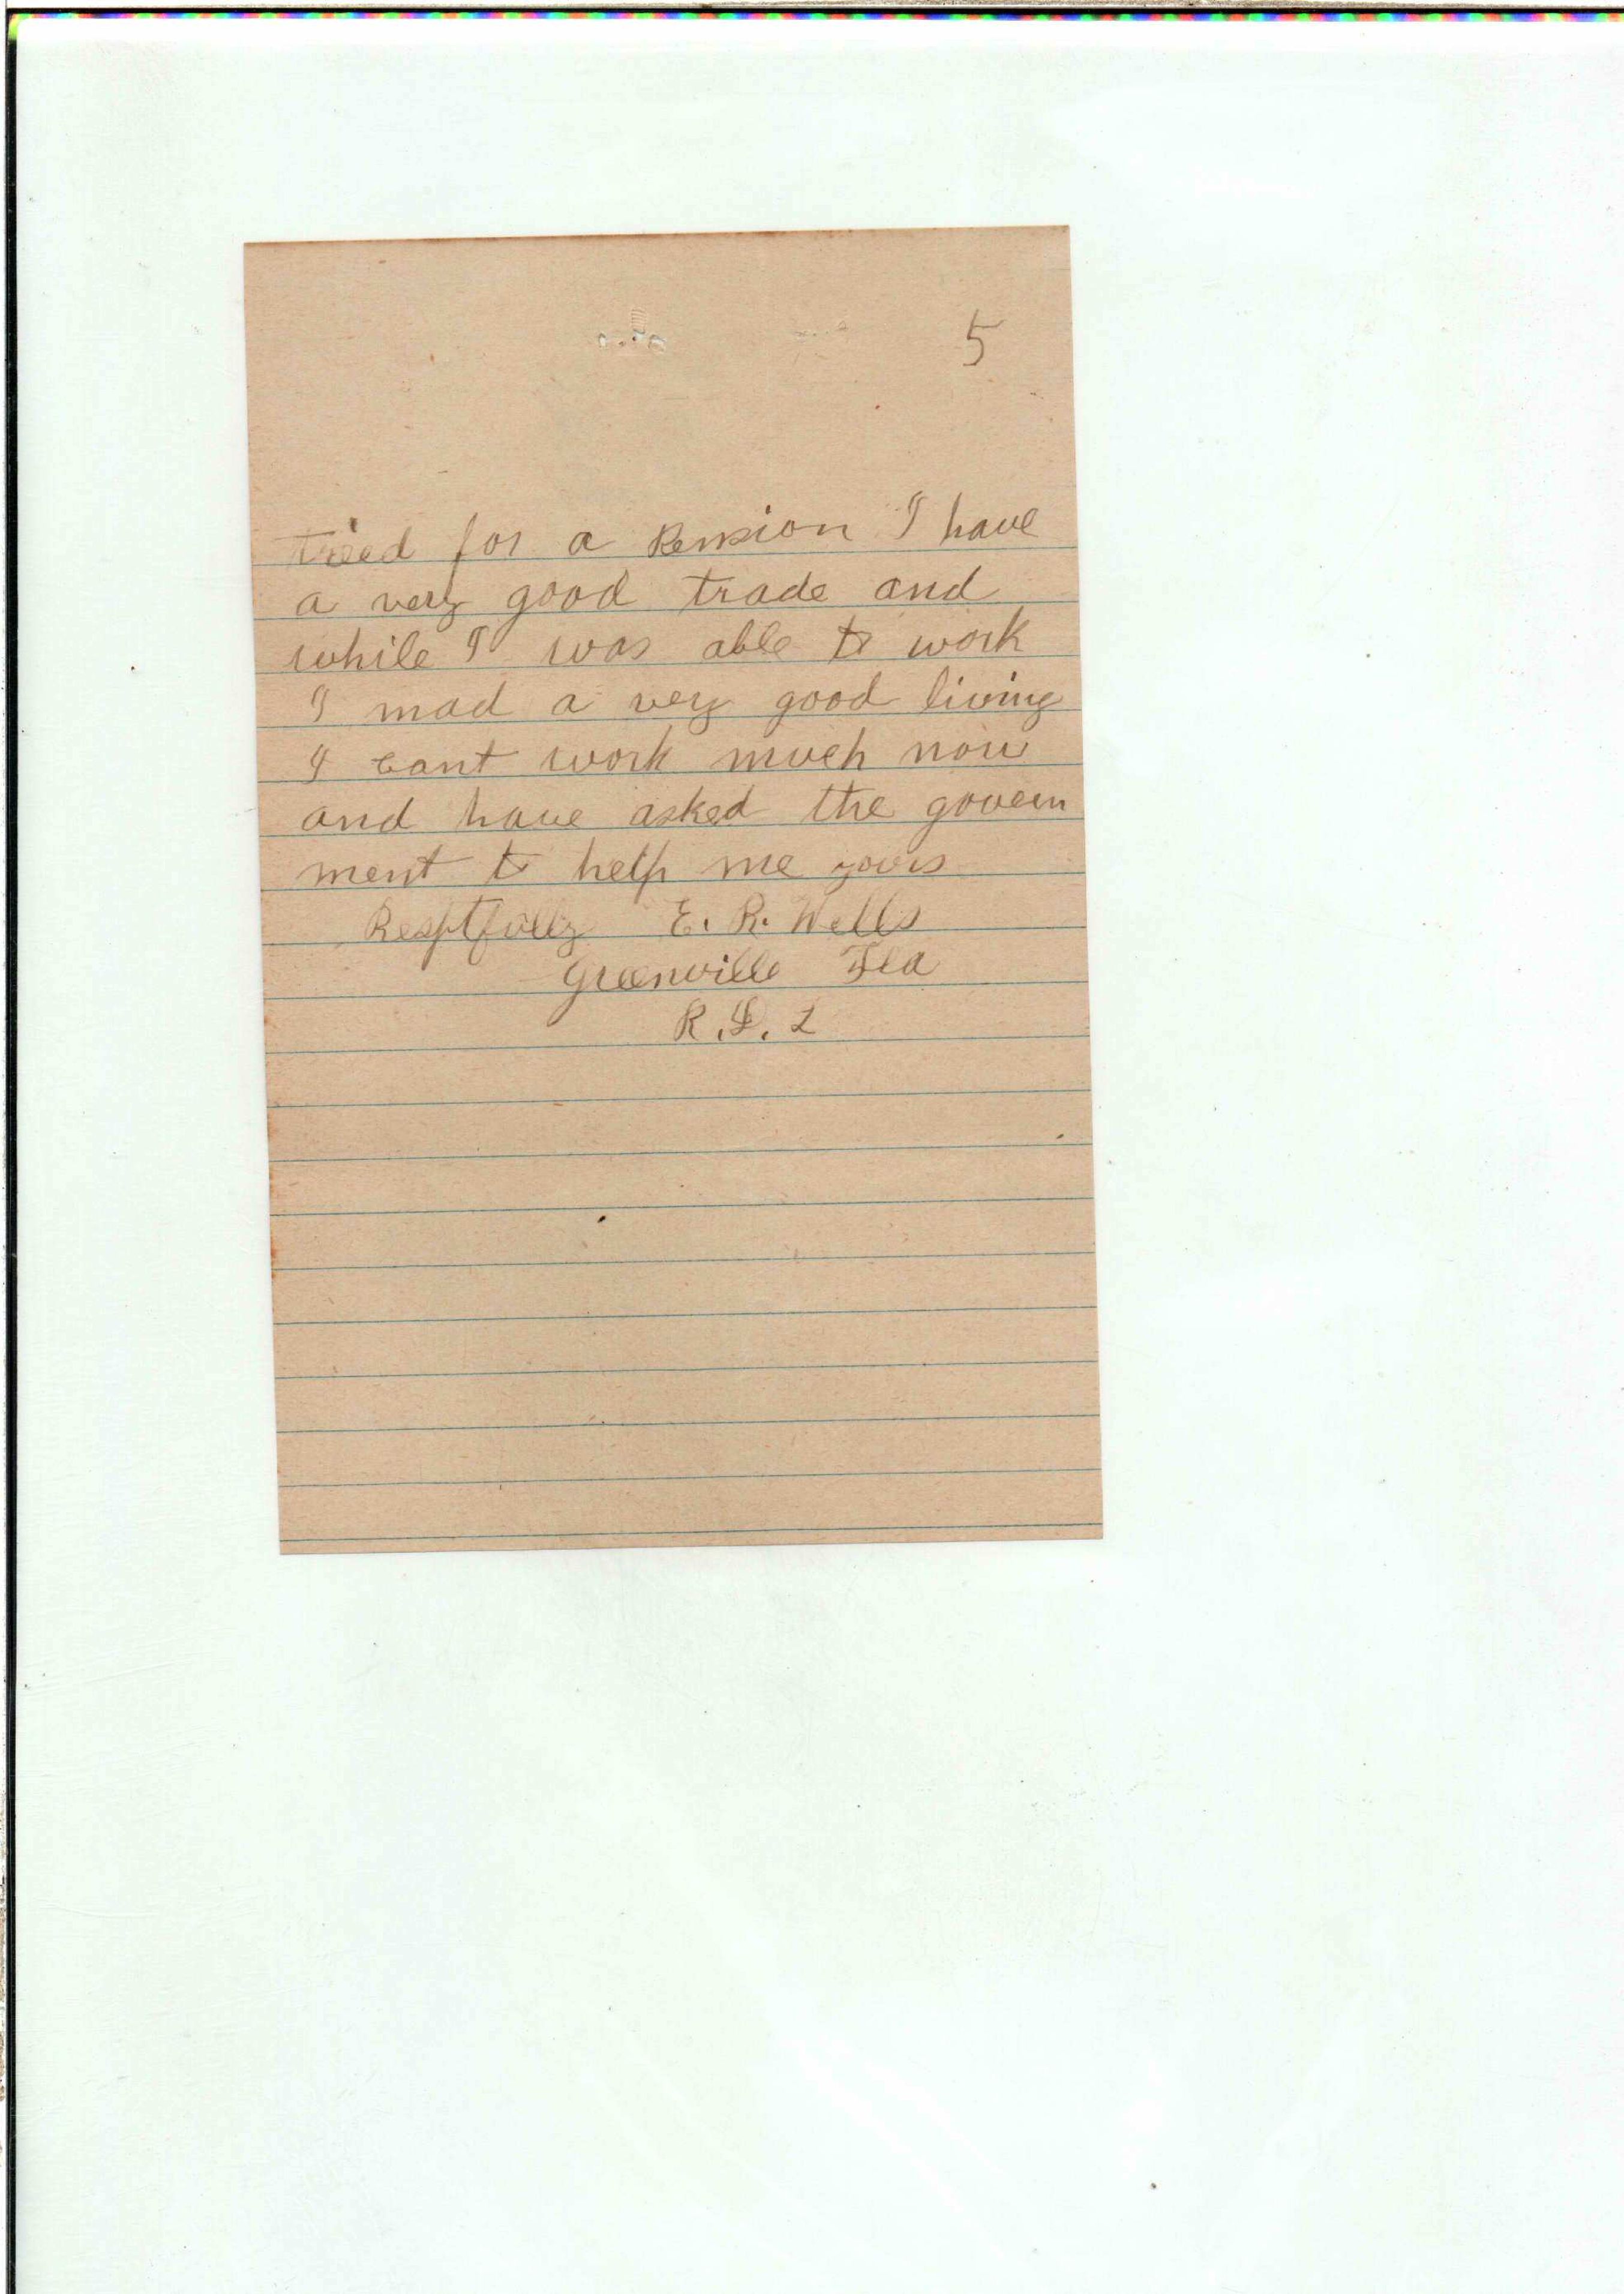 5
tried for a Pension I have
a very good trade and
while I was able to work
I mad a very good living
I cant work much now
and have asked the govern
ment to help me yours
Resptfully E. R. Wells
Greenville Fla
R.D. 2